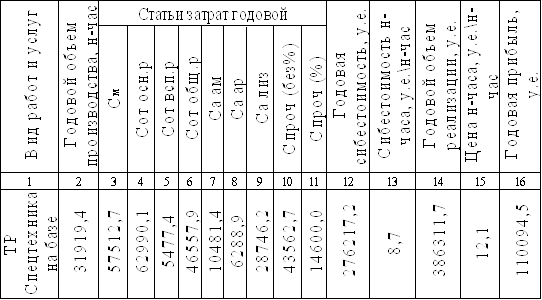 Вид работ и услуг
Годовой объем
производства, н-час
Статьи затрат годовой
См
Сот осн.р
Сот всп.р
Сот общ.р
Са ам
Са ар
Са лиз
Спроч (без%)
Спроч (%)
Годовая
сибестоимость, у.е.
Сибестоимость н-
часа, у.е.\н-час
Годовой объем
реализации, у.е.
Цена н-часа, у.е.\н-
час
Годовая прибыль,
у.е.
1 2 3 4 5 6 7 8 9 10 11 12 13 14 15 16
ТР
Спецтехника
на базе
31919,4
57512,7
62990,1
5477,4
46557,9
10481,4
6288,9
28746,2
43562,7
14600,0
276217,2
8,7
386311,7
12,1
110094,5